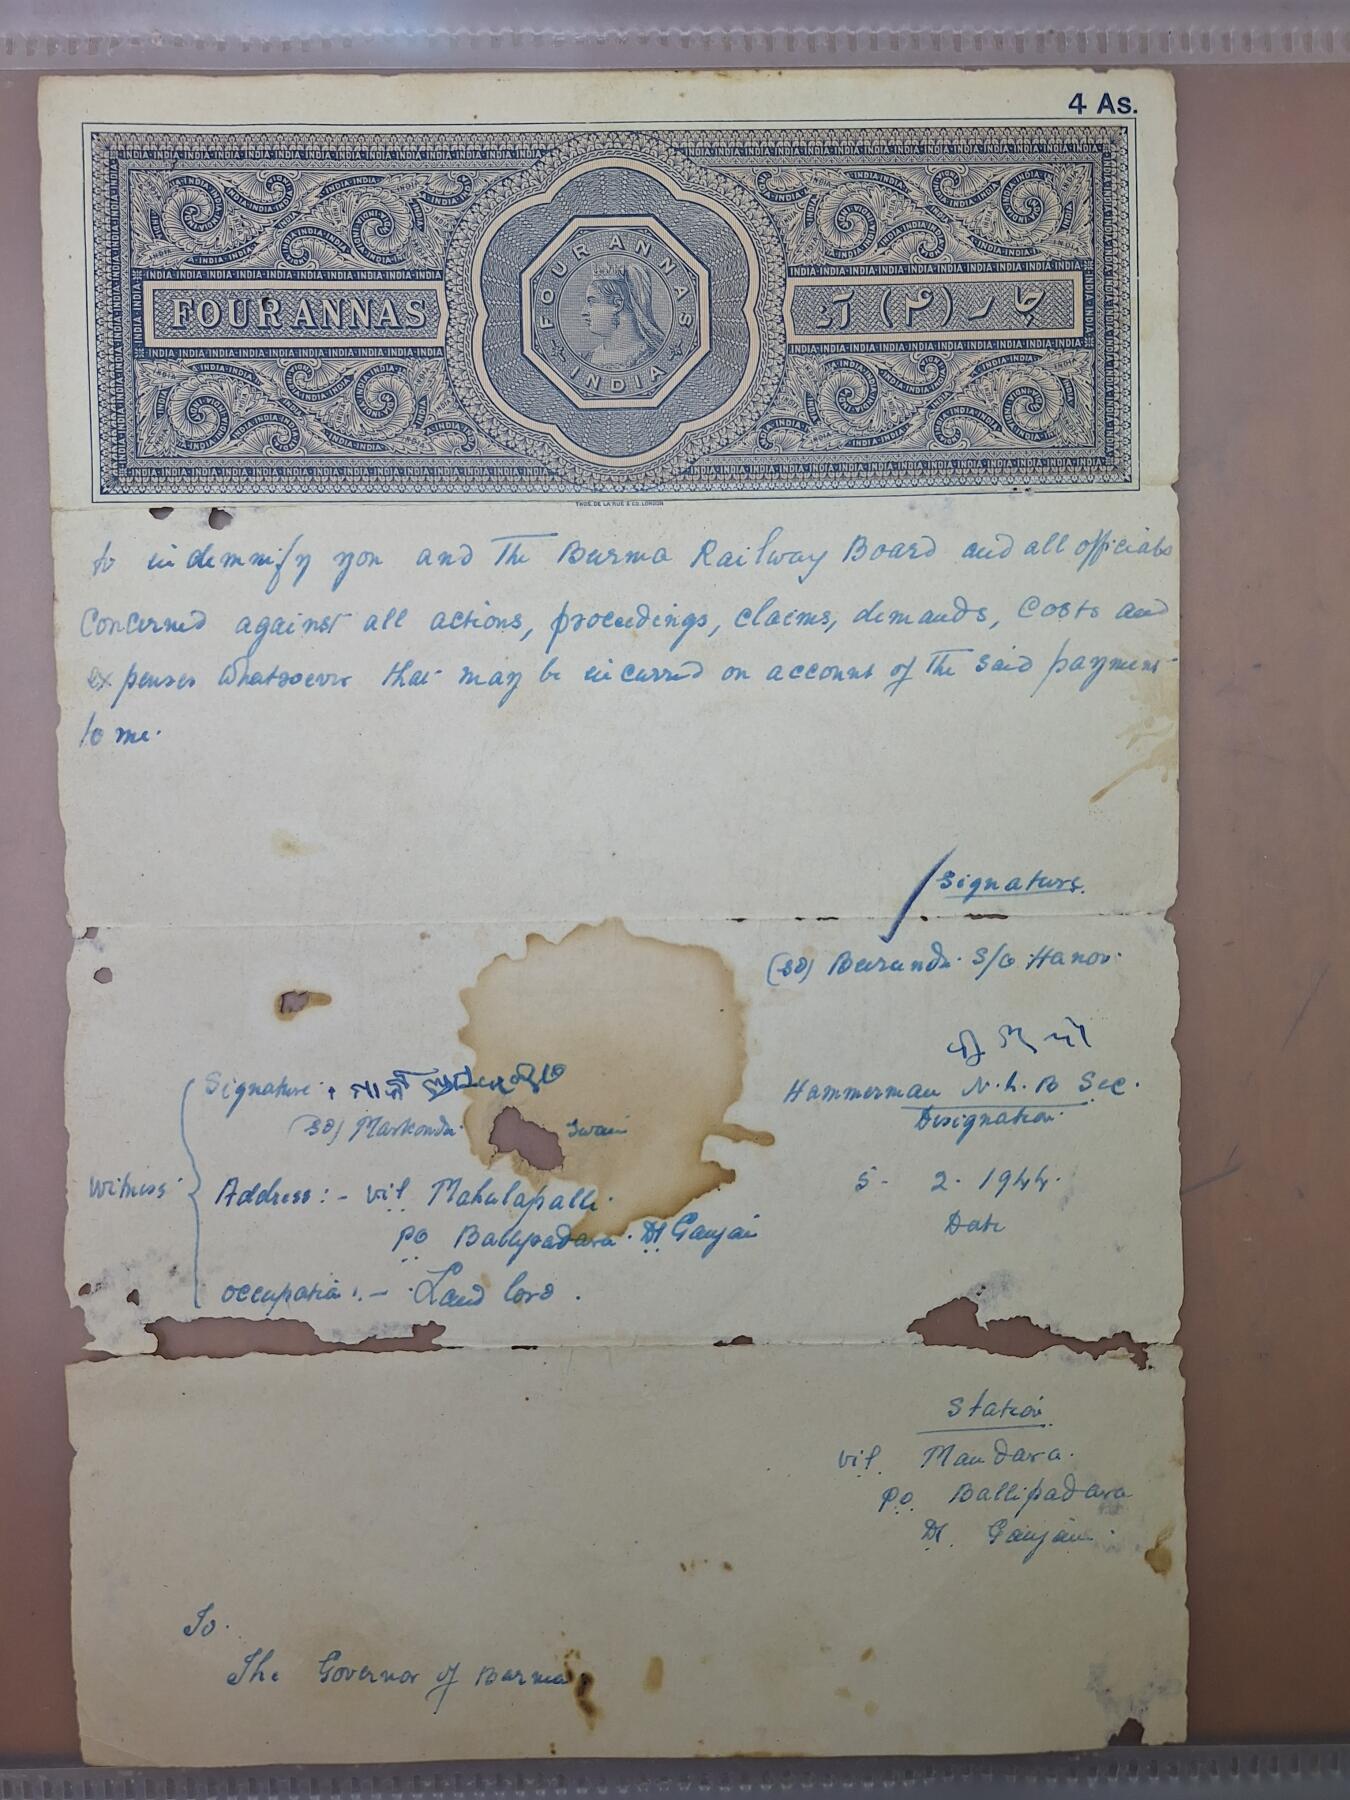 4 As.
FOUR ANNAS
FOUR ANNAS
INDIA
چار (۴) آنہ
THOS. DE LA RUE & CO. LONDON
to indemnify you and The Burma Railway Board and all officials
Concerned against all actions, proceedings, claims, demands, Costs and
expenses whatsoever that may be incurred on account of The said payment
to me.
Signature.
(Sd) Burundi S/o Hanov.
Signature :
Hammerman N. L. B Sec.
Designation
(Sd) Markonda Swain
Witness
Address :- vil. Mahulapalli.
5- 2. 1944.
P.O Ballipadara. Dt Ganjam
Date
Occupation :- Land lord.
Station
vil. Mandara.
P.O. Ballipadara
Dt. Ganjam.
To.
The Governor of Burma